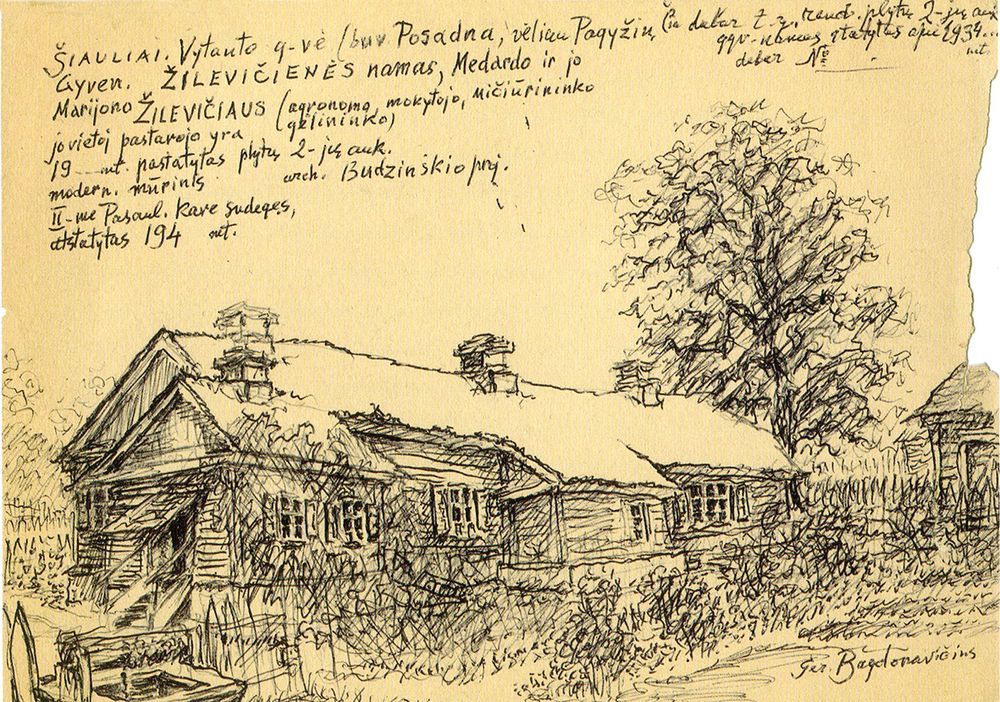 ŠIAULIAI. Vytauto g-vė (buv. Posadna, vėliau Pagyžių,
Čia dabar t. z. raud. plytų 2-jų auk.
gyv. namas statytas apie 1934... mt.
dabar №
Gyven. ŽILEVIČIENĖS namas, Medardo ir jo
Marijono ŽILEVIČIAUS (agronomo, mokytojo, mičiūrininko
gėlininko)
jo vietoj pastarojo yra
19... mt. pastatytas plytų 2-jų auk.
modern. mūrinis arch. Budzinškio proj.
II-me Pasaul. kare sudegęs,
atstatytas 194 mt.
Ger. Bagdonavičius